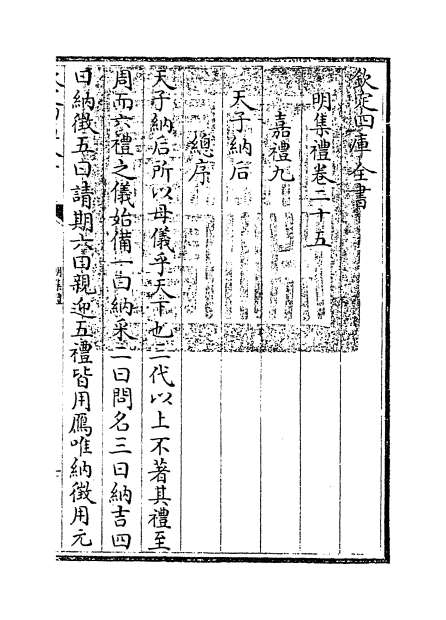 欽定四庫全書
明集禮卷二十五
嘉禮九
天子納后
總序
天子納后所以母儀乎天下也三代以上不著其禮至
周而六禮之儀始備一曰納采二曰問名三曰納吉四
曰納徵五曰請期六曰親迎五禮皆用鴈唯納徵用元